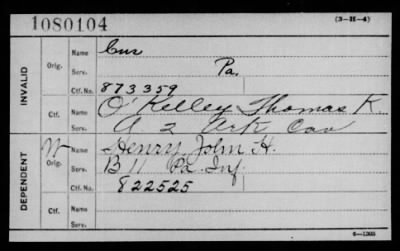 1080104 (3-H-4)
INVALID
Orig.
Name Cur
Serv. Pa.
Ctf. No. 873359
Ctf.
Name O'Kelley Thomas K.
Serv. A 2 Ark Cav
DEPENDENT
W
Orig.
Name Henry, John H.
Serv. B 11 Pa. Inf.
Ctf. No. 822525
Ctf.
Name
Serv.